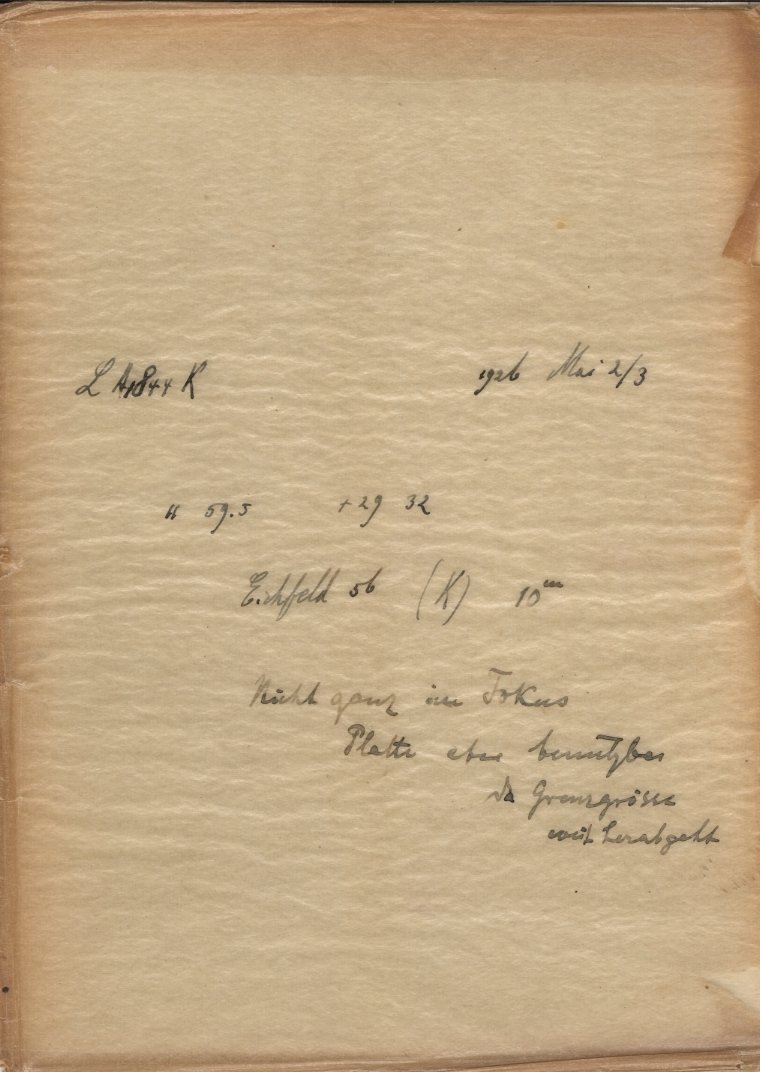 L A1844 K 1926 Mai 2/3
11 59.5 +29 32
Eichfeld 56 (K) 10m
Nicht ganz im Fokus
Platte aber benutzbar
da Grenzgrösse
weit herabgeht